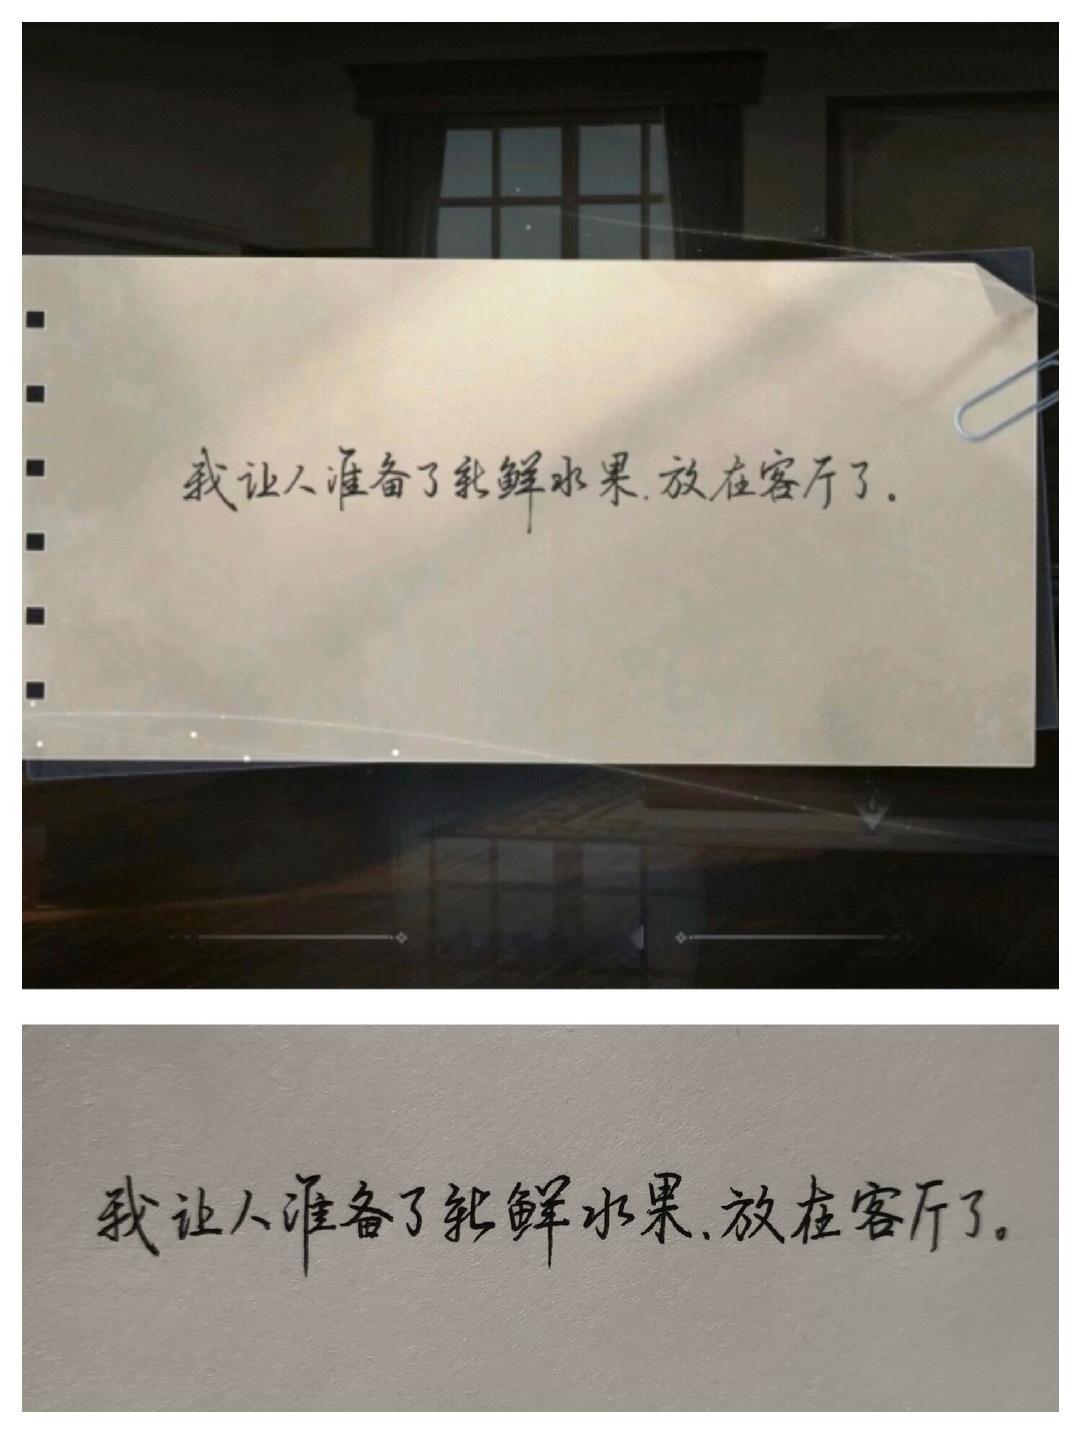 我让人准备了新鲜水果，放在客厅了。
我让人准备了新鲜水果，放在客厅了。